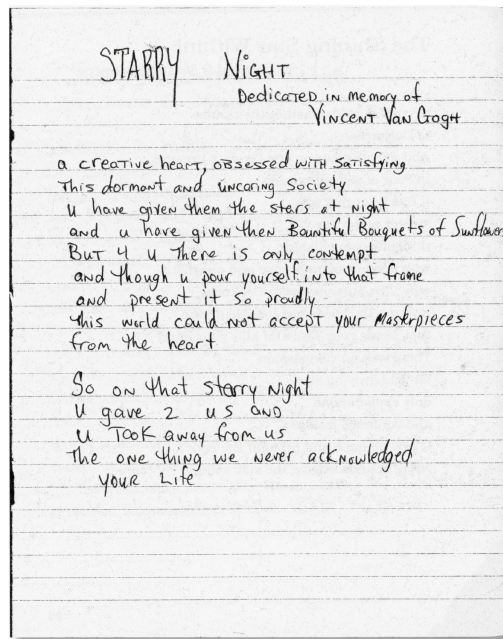 STARRY NIGHT
Dedicated in memory of
Vincent Van Gogh
a creative heart, obsessed with satisfying
This dormant and uncaring society
u have given them the stars at night
and u have given then Bountiful Bouquets of Sunflowers
But 4 u there is only contempt
and though u pour yourself into that frame
and present it so proudly
this world could not accept your Masterpieces
from the heart
So on that starry night
u gave 2 us and
u took away from us
The one thing we never acknowledged
your Life